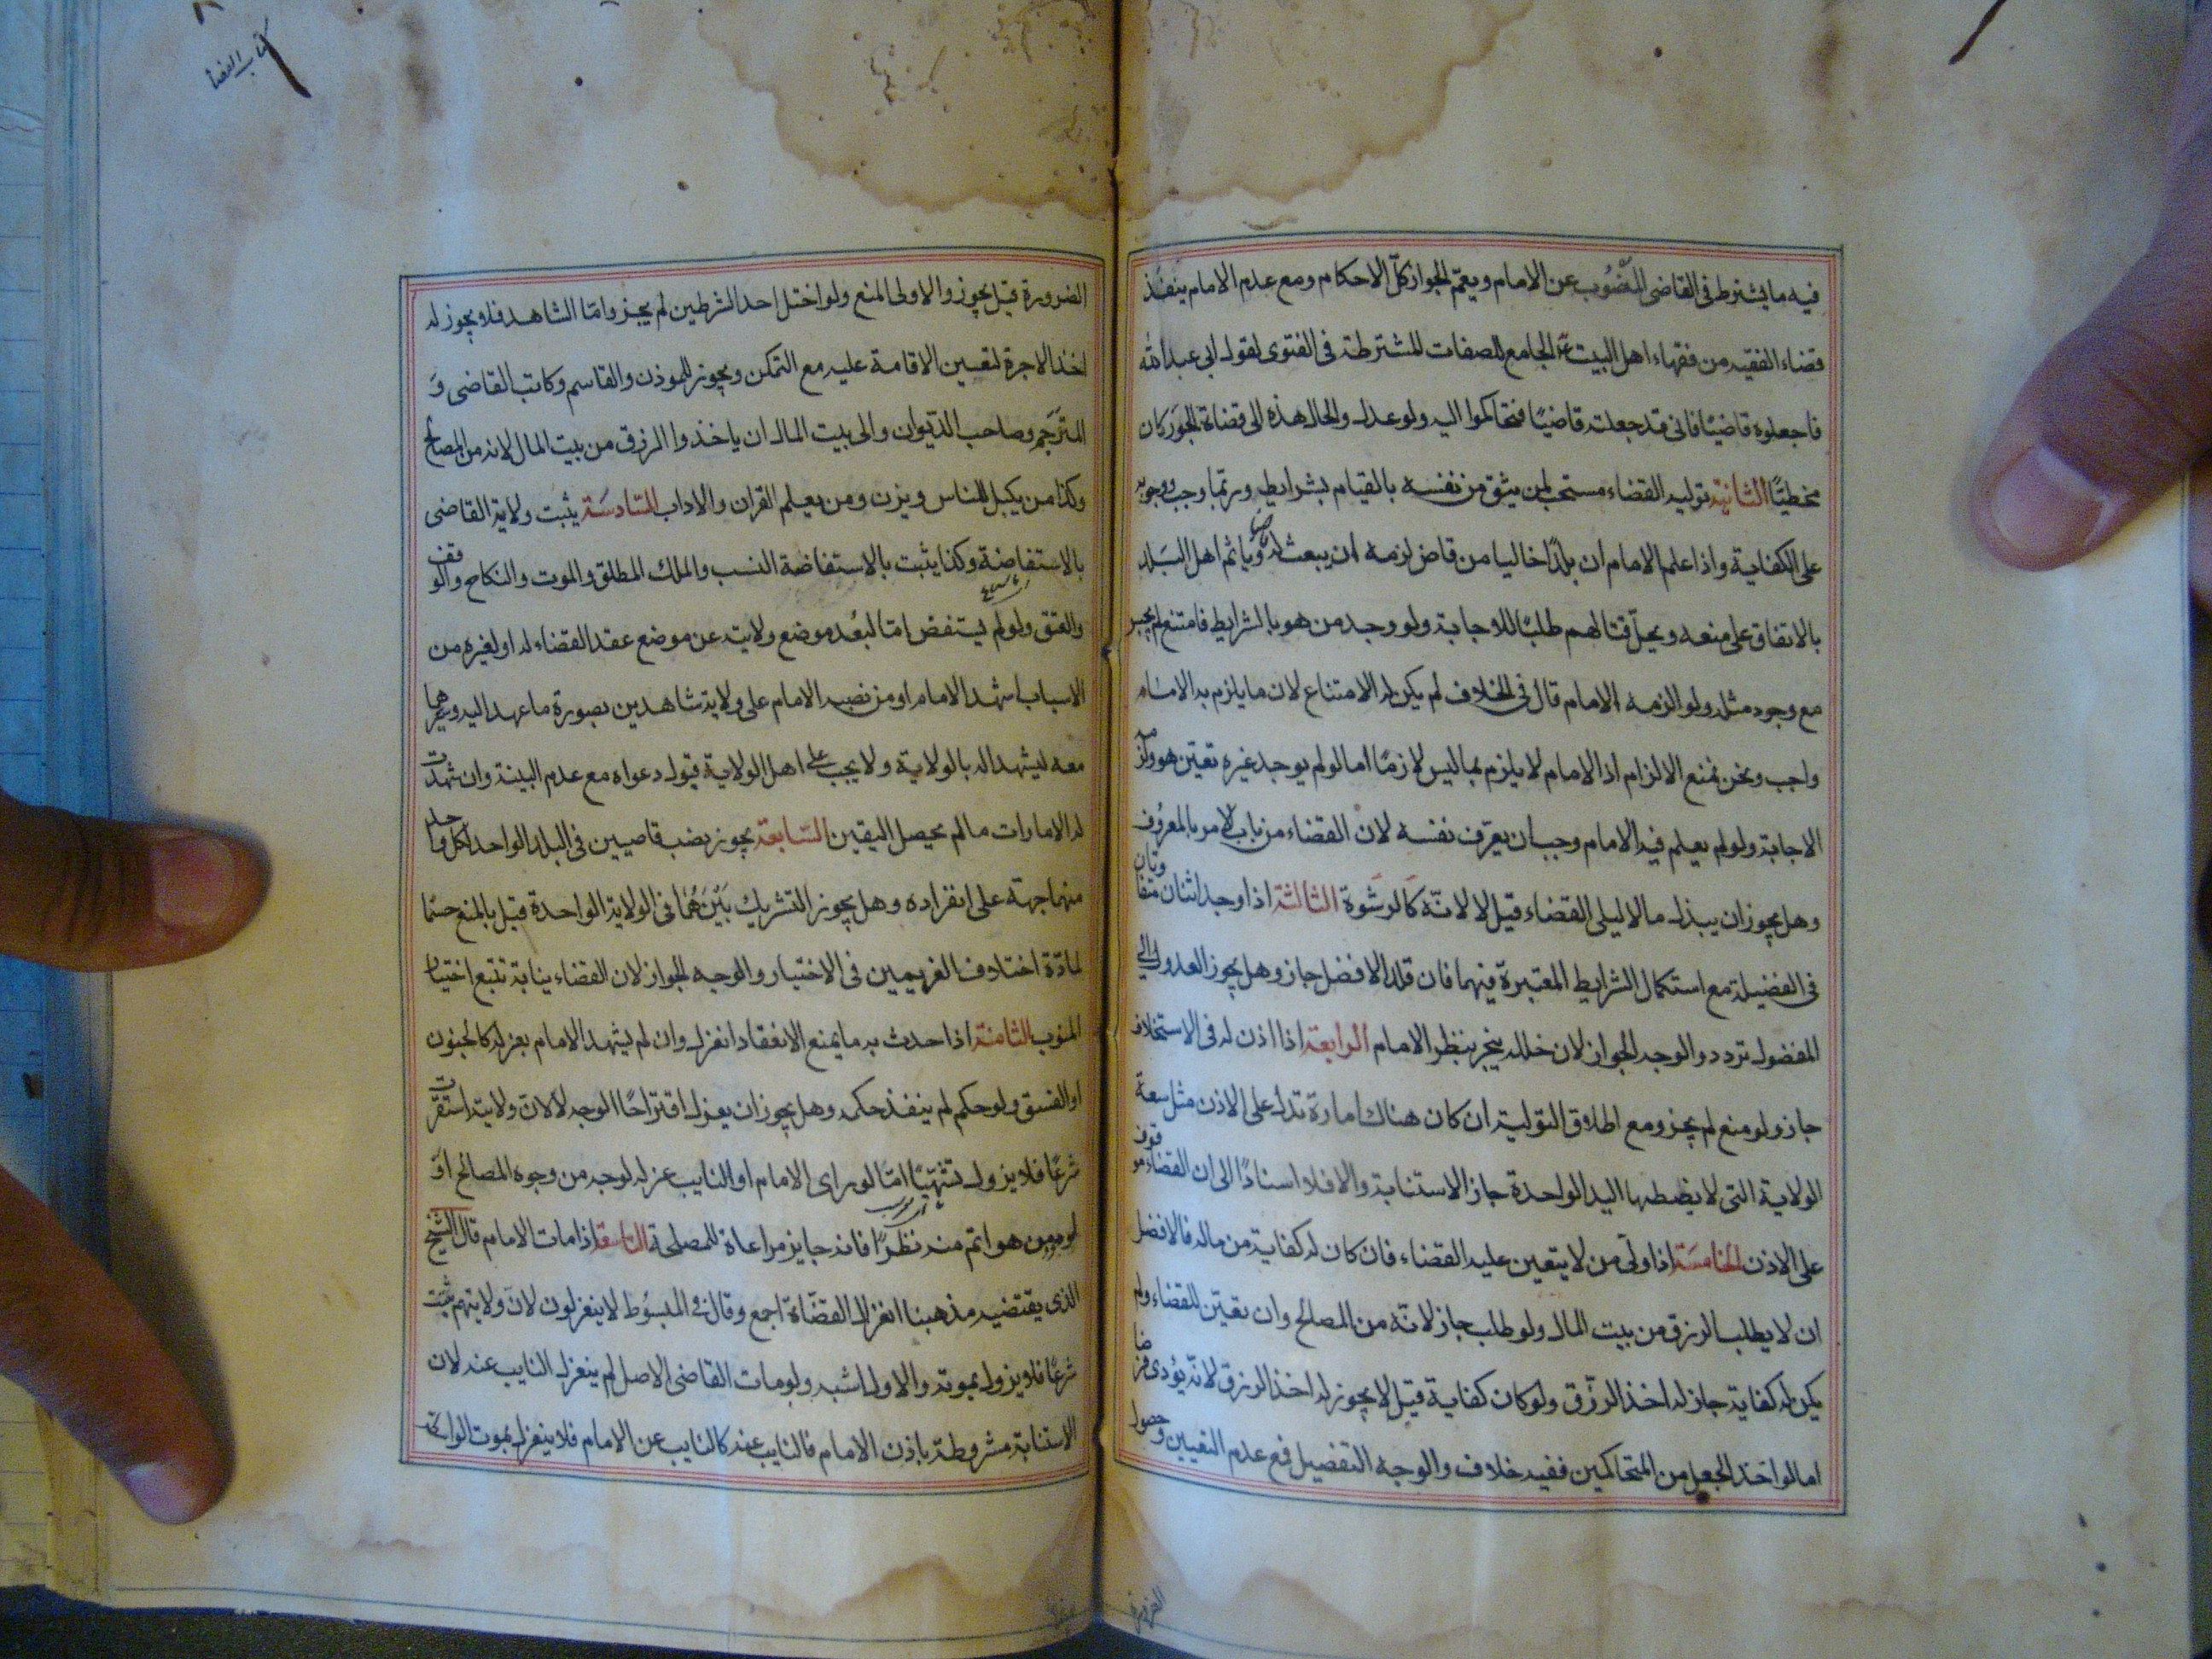 فيه ما يشترط فى القاضى المنصُوب عن الامام ويعمّ الجواز كلّ الاحكام ومع عدم الامام ينفُذ
قضاء الفقيه من فقهاء اهل البيت ع الجامع للصفات المشترطة فى الفتوى لقول ابى عبد الله
فاجعلوه قاضيًا فانى قد جعلته قاضيًا فتحاكموا اليه ولو عدل والحال هذه الى قضاة الجَور كان
مخطيًا الثانية تولية القضاء مستحب لمن يثق من نفسه بالقيام بشرايطه وربّما وجب ووجوبه
على الكفاية واذا علم الامام ان بلدًا خاليا من قاض لزمه ان يبعث له وياثم اهل البَلد
بالاتفاق على منعه ويحلّ قتالهم طلبًا للاجابة ولو وجد من هو بالشرايط فامتنع لم يجبر
مع وجود مثله ولو الزمه الامام قال فى الخلاف لم يكن له الامتناع لان ما يلزم به الامام
واجب ونحن نمنع الالزام اذ الامام لا يلزم بما ليس لازمًا اما لو لم يوجد غيره تعيّن هو ولزمه
الاجابة ولو لم يعلم فيه الامام وجب ان يعرّف نفسه لان القضاء من باب الامر بالمعرُوف
وهل يجوز ان يبذل مالا ليلى القضاء قيل لا لانّه كالرشوة الثالثة اذا وجد اثنان متفاوتان
فى الفضيلة مع استكمال الشرايط المعتبرة فيهما فان قلد الافضل جاز وهل يجوز العدول الى
المفضول تردد والوجه الجواز لان خلله ينجبر بنظر الامام الرابعة اذا اذن له فى الاستخلاف
جاز ولو منع لم يجز ومع اطلاق التولية ان كان هناك امارة تدل على الاذن مثل سعة
الولاية التى لا يضبطها اليد الواحدة جاز الاستنابة والا فلا استنادًا الى ان القضاء موقوف
على الاذن الخامسَة اذا ولّى من لا يتعين عليه القضاء فان كان له كفاية من ماله فالافضل
ان لا يطلب الرزق من بيت المال ولو طلب جاز لانّه من المصالح وان تعيّن للقضاء ولم
يكن له كفاية جاز له اخذ الرزق ولو كان كفاية قيل لا يجوز له اخذ الرزق لانّه يؤدى فرضا
اما لو اخذ الجعل من المتحاكمين ففيه خلاف والوجه التفصيل فمع عدم التعيين وحصول
الضرورة
كتاب القضا
الضرورة قيل يجوز والاولى المنع ولو اختل احد الشرطين لم يجز وامّا الشاهد فلا يجوز له
اخذ الاجرة لتعيين الاقامة عليه مع التمكن ويجوز للموذن والقاسم وكاتب القاضى وَ
المترَجم وصاحب الديوان والى بيت المال ان ياخذوا الرزق من بيت المال لانه من المصالح
وكذا من يكيل للناس ويزن ومن يعلم القران والاداب السّادسَة يثبت ولاية القاضى
بالاستفاضة وكذا يثبت بالاستفاضة النسب والملك المطلق والموت والنكاح والوقف
والعتق ولو لم يستفض امّا لبُعد موضع ولايته عن موضع عقد القضاء له او لغيره من
الاسباب اشهد الامام او من نصبه الامام على ولايته شاهدين بصورة ما عهد اليه وسيرهما
معه ليشهدا له بالولاية ولا يجب على اهل الولاية قبول دعواه مع عدم البينة وان شهدت
له الامارات ما لم يحصل اليقين السّابعة يجوز نصب قاضيين فى البلد الواحد لكل واحد
منهما جهة على انفراده وهل يجوز التشريك بَيْنَهُمَا فى الولاية الواحدة قيل بالمنع حسمًا
لمادّة اختلاف الغريمين فى الاختيار والوجه الجواز لان القضاء نيابة تتبع اختيار
المنوب الثامنة اذا حدث به ما يمنع الانعقاد انعزل وان لم يشهد الامام بعزله كالجنون
او الفسق ولو حكم لم ينفذ حكمه وهل يجوز ان يعزل اقتراحًا الوجه لا لانّ ولايته استقرّت
شرعًا فلا يزول تشهّيًا امّا لو راى الامام او النايب عزله لوجه من وجوه المصالح اوَ
لوجود من هو اتم منه نظرًا فانه جايز مراعاة للمصلحة التاسعة اذا مات الامام قال الشيخ
الذى يقتضيه مذهبنا انعزال القضَاة اجمع وقال فى المبسُوط لا ينعزلون لانّ ولايتهم ثبتت
شرعًا فلا يزول بموته والاول اشبه ولو مات القاضى الاصل لم ينعزل النايب عنه لان
الاستنابة مشروطة باذن الامام فالنايب عنه كالنايب عن الامام فلا ينعزل بموت الواسطة